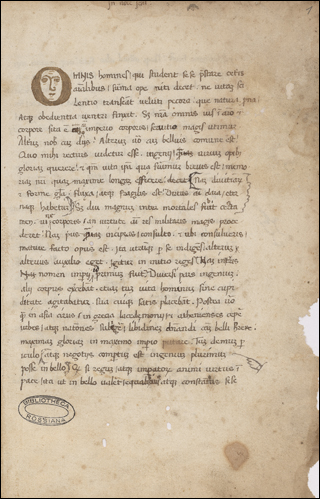 OMNIS homines qui student sese p̄stare ceteris
aīalibus sūma ope niti decet ne uitam si
lentio transeāt veluti pecora que natura pna
atq obedientia uentri finxit Sꝫ nr̄a omnis uis ī aīo ⁊
corpore sita ē aī imperio corporis seruitio magis utimur
Alterū nob cū dijs Alterū cū beluis comune est
Quo mihi rectius uidetur esse ingenij quā uiriū opibꝫ
gloriam querere ⁊ qm̄ uita ipā qua fruimur breuis est memo
riam nrī quā maxime longā efficere Nā diuitiarū
⁊ forme glīa fluxa atqꝫ fragilis est Virtus clara eterna
qꝫ habetur Sꝫ diu magnū inter mortales fuit certa
men ui corporis an uirtute aī res militaris magis proce
deret Nam priusquā incipias consulto ⁊ ubi consulueris
mature facto opus est ita utrūqꝫ p se indigēs alterū
alterius auxilio eget igitur in initio reges Nam in terris
nomen imperij primū fuit Diuersi pars ingeniū
alij corpus exercebāt etiam tum uita hominū sine cupi
ditate agitabatur sua cuiqꝫ satis placebāt Postea uō
q̄ in asia cirus in grecia lacedemonij ⁊ athenienses cepe
urbes atqꝫ nationes libidinem dn̄andi cām belli
maximam gloriam in maximo imꝑio putare Tum demum ꝑi
culo atqꝫ negotijs compertū est ingeniū plurimū
posse in bello Qꝫ si regum atqꝫ imperatorū animi uirtus ī
pace ita ut in bello ualeret equabilius atqꝫ constantius sese
BIBLIOTHECA
ROSSIANA